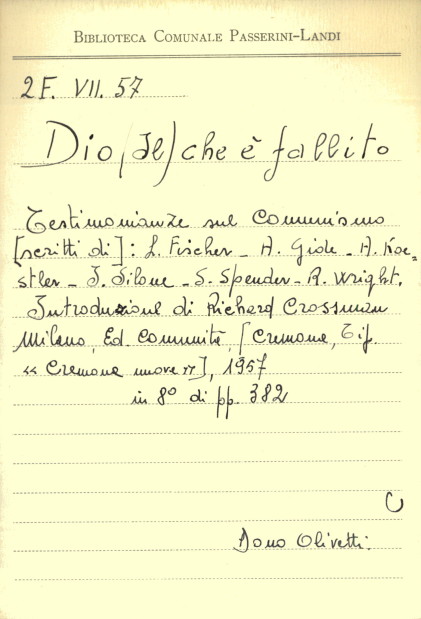 BIBLIOTECA COMUNALE PASSERINI-LANDI
2F. VII. 57
Dio (Il) che è fallito
Testimonianze sul Comunismo
[scritti di]: L. Fischer - A. Gide - A. Koe=
stler - I. Silone - S. Spender - R. Wright.
Introduzione di Richard Crossman
Milano, Ed. Comunità, [Cremona, Tip.
"Cremona nuova"], 1957
in 8° di pp. 382
C
Dono Olivetti.